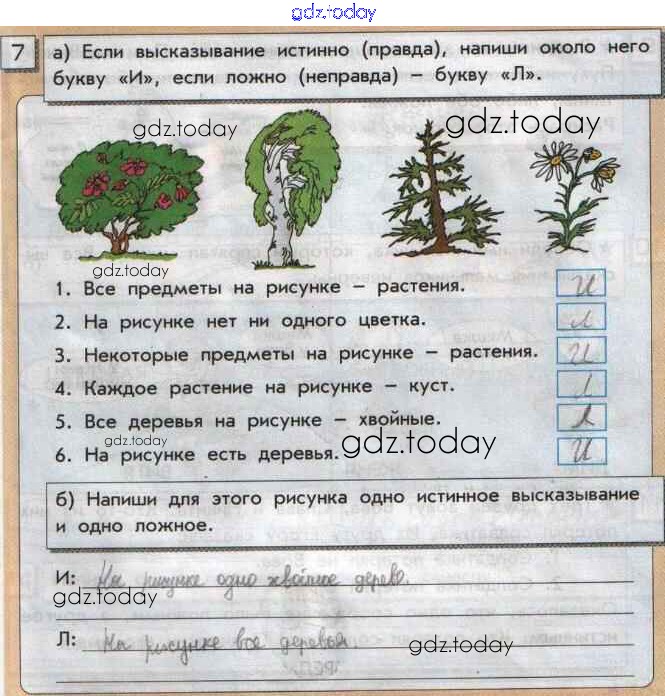 gdz.today
7 а) Если высказывание истинно (правда), напиши около него
букву «И», если ложно (неправда) – букву «Л».
gdz.today
gdz.today
gdz.today
1. Все предметы на рисунке – растения. И
2. На рисунке нет ни одного цветка. Л
3. Некоторые предметы на рисунке – растения. И
4. Каждое растение на рисунке – куст. Л
5. Все деревья на рисунке – хвойные. Л
gdz.today
gdz.today
6. На рисунке есть деревья. И
б) Напиши для этого рисунка одно истинное высказывание
и одно ложное.
И: На рисунке одно хвойное дерево.
gdz.today
Л: На рисунке все деревья.
gdz.today